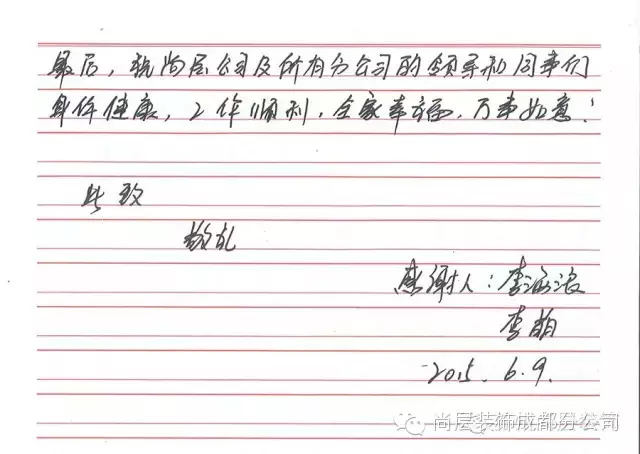 最后，祝尚层公司及所有分公司的领导和同事们
身体健康，工作顺利，全家幸福，万事如意！
此致
敬礼
感谢人：李
李萌
2015.6.9.
尚层装饰成都分公司